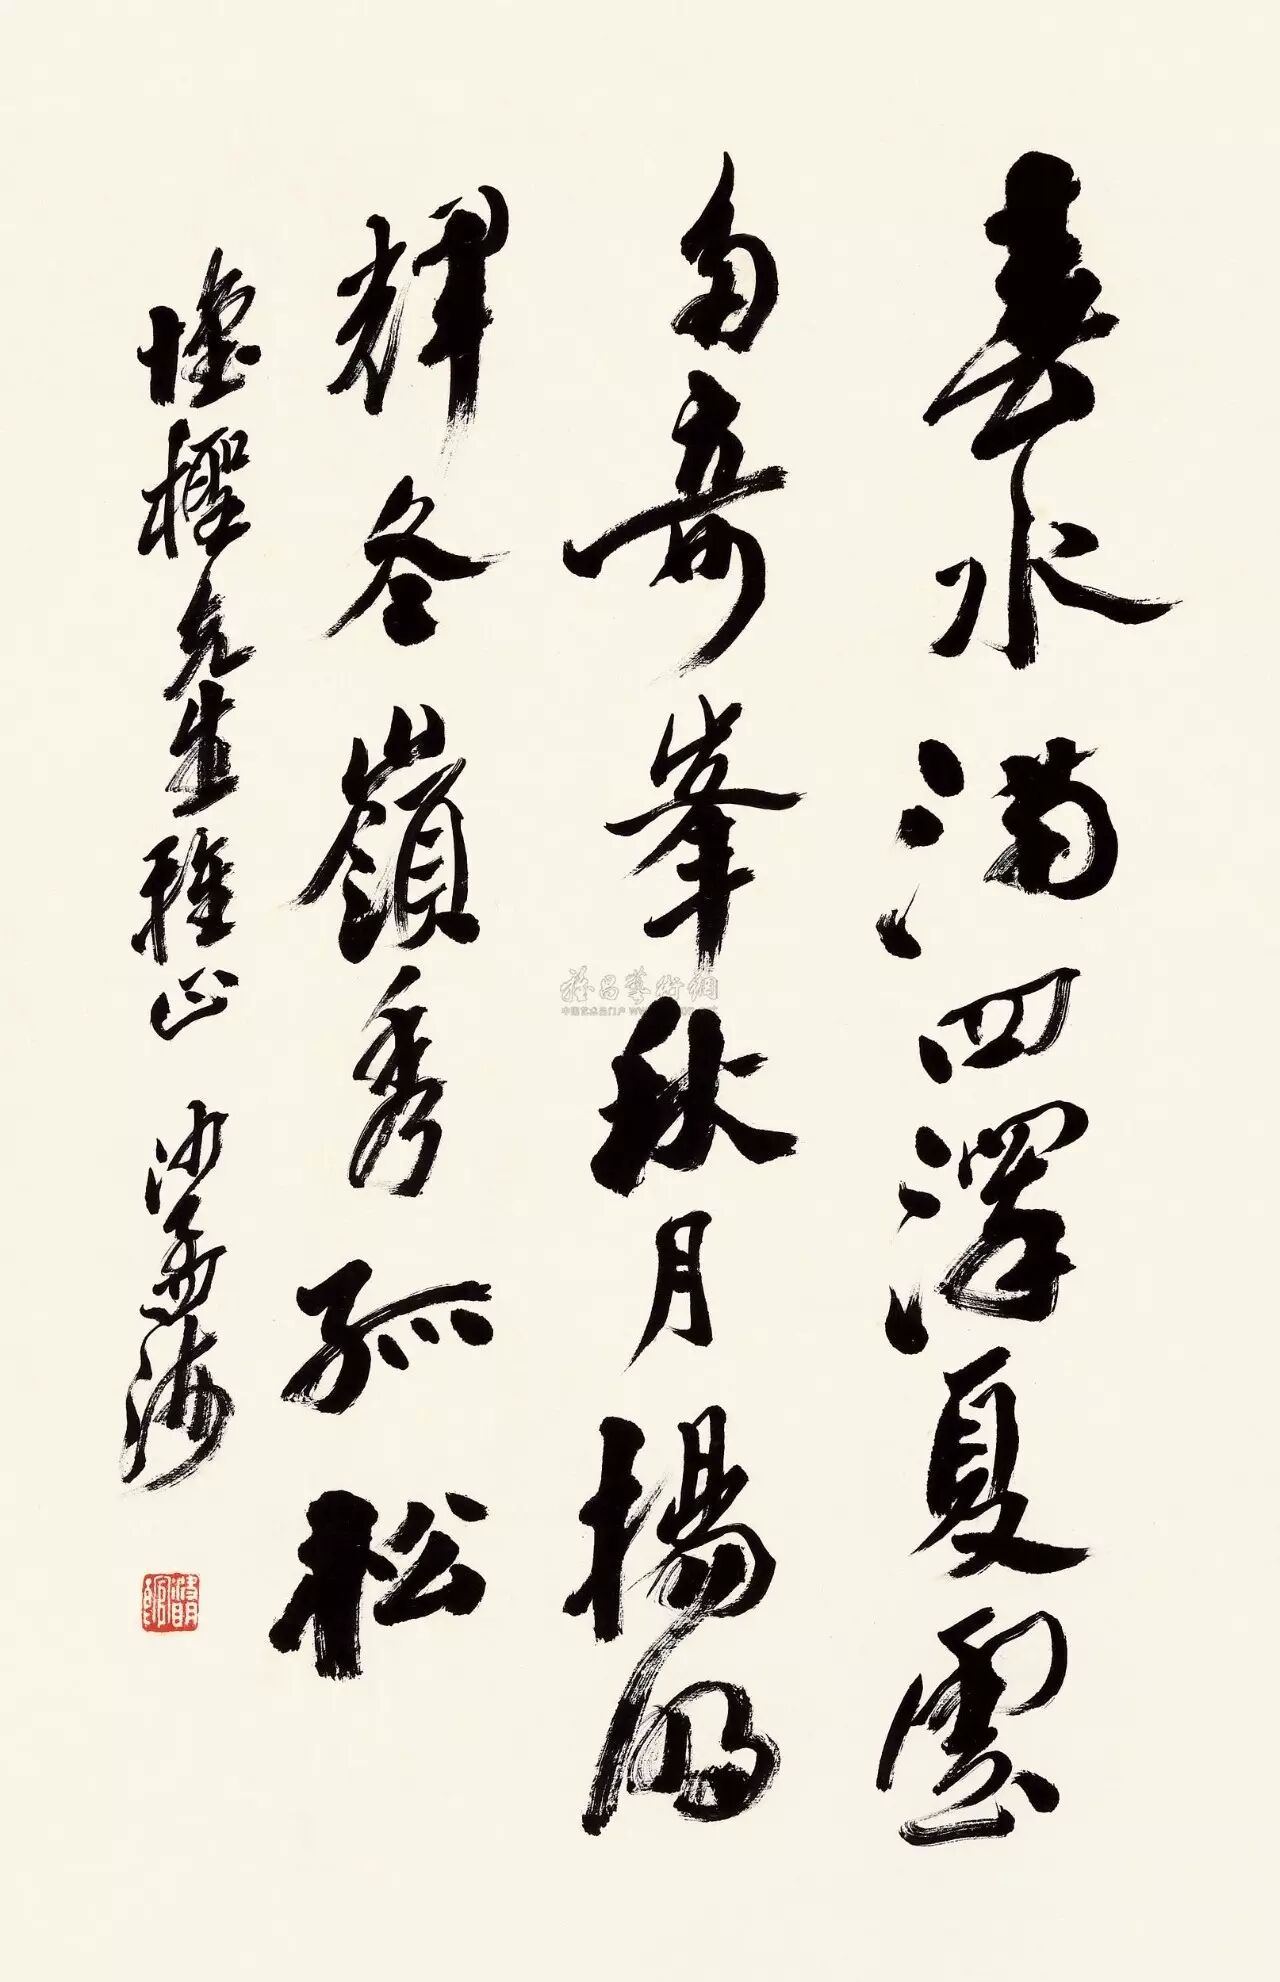 春水滿四澤夏雲
多奇峯秋月揚明
輝冬嶺秀孤松
先生雅正 沙孟海
雅昌藝術網